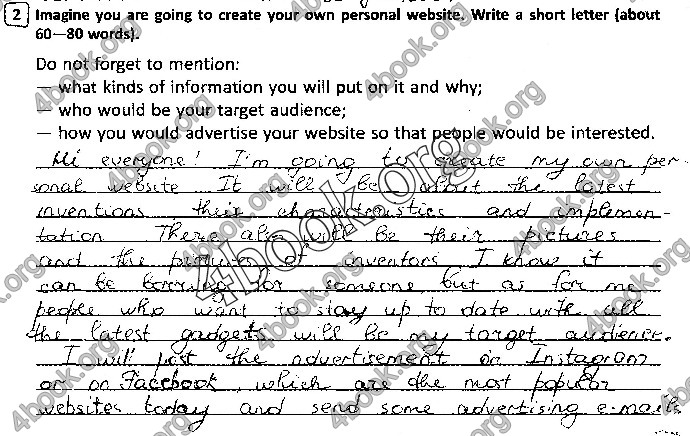 2 Imagine you are going to create your own personal website. Write a short letter (about
60—80 words).
Do not forget to mention:
— what kinds of information you will put on it and why;
— who would be your target audience;
— how you would advertise your website so that people would be interested.
Hi everyone! I'm going to create my own per
sonal website It will be about the latest
inventions their characteristics and implemen-
tation. There also will be their pictures
and the pictures of inventors I know it
can be boring for someone, but as for me
people who want to stay up to date with all
the latest gadgets will be my target audience.
I will post the advertisement on Instagram
or on Facebook, which are the most popular
websites today and send some advertising e-mails
4book.org